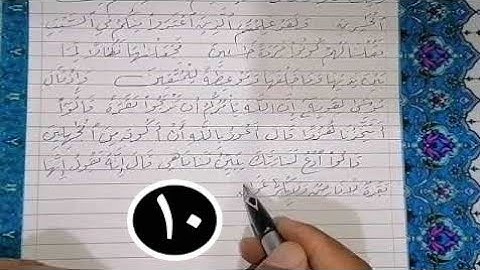 الخسرين ولقد علمتم الذين اعتدوا منكم في السبت
فقلنا لهم كونوا قردة خسئين فجعلناها نكالا لما
بين يديها وما خلفها وموعظة للمتقين وإذ قال
موسى لقومه إن الله يأمركم أن تذبحوا بقرة قالوا
أتتخذنا هزوا قال أعوذ بالله أن أكون من الجهلين
قالوا ادع لنا ربك يبين لنا ما هي قال إنه يقول إنها
بقرة لا فارض ولا بكر
١٠